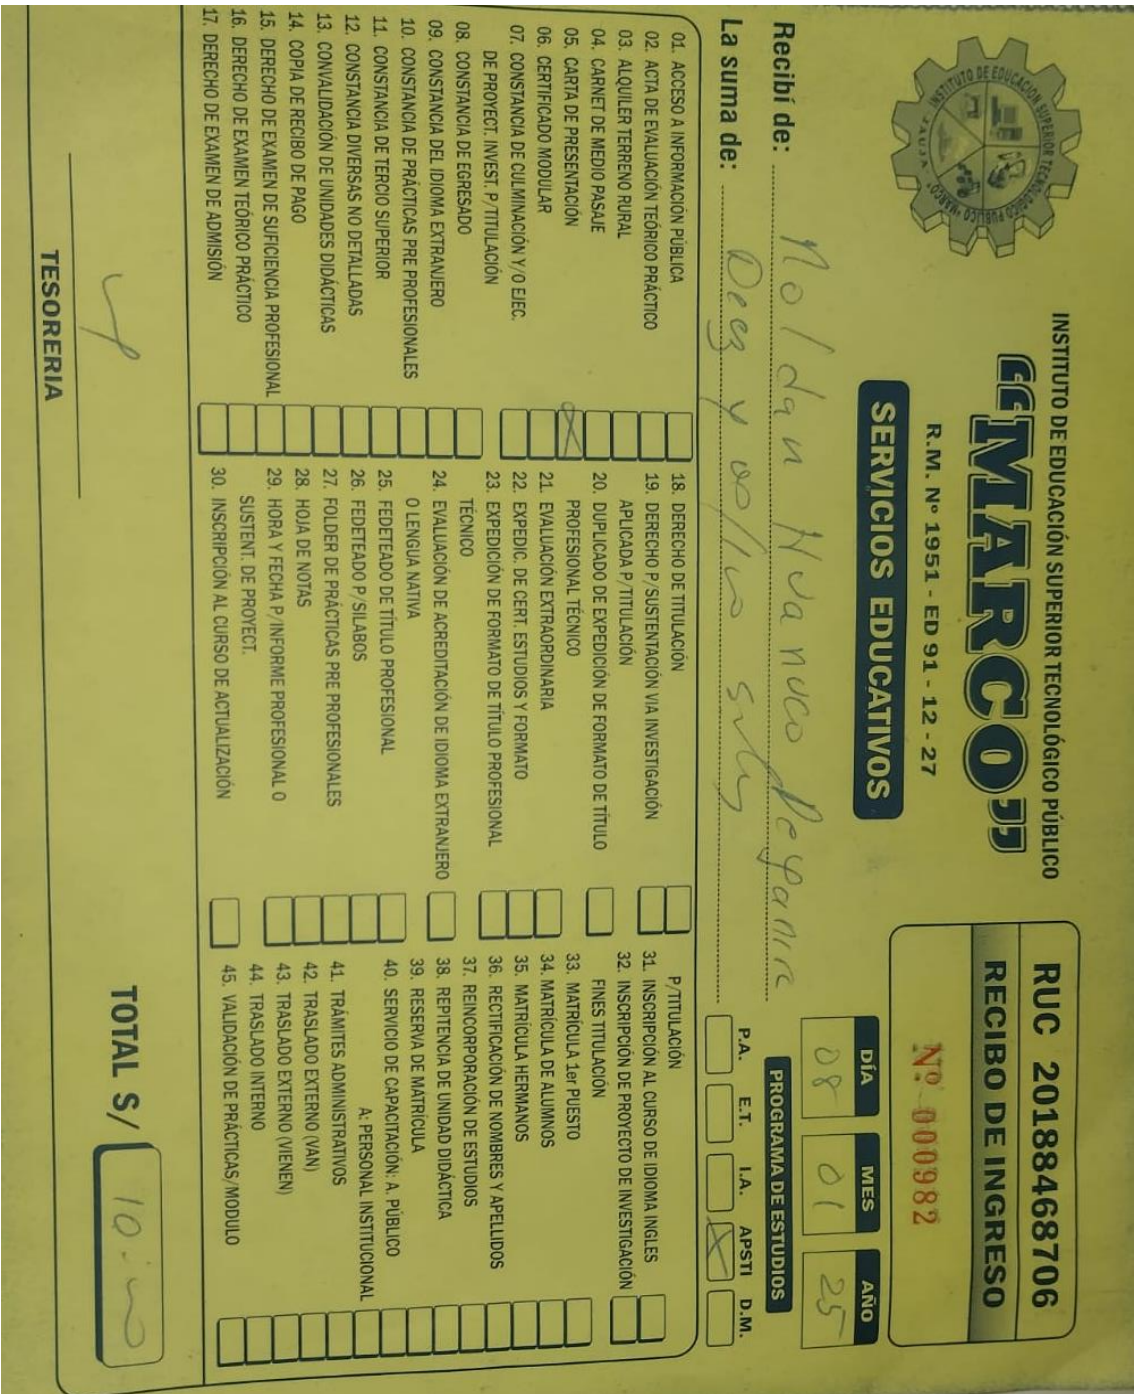 INSTITUTO DE EDUCACIÓN SUPERIOR TECNOLÓGICO PÚBLICO
“MARCO”
R.M. Nº 1951 - ED 91 - 12 - 27
SERVICIOS EDUCATIVOS
INSTITUTO DE EDUCACION SUPERIOR TECNOLOGICO PUBLICO "MARCO"
JAUJA
RUC 20188468706
RECIBO DE INGRESO
Nº 000982
DÍA MES AÑO
08 01 25
Recibí de: Roldan Huanuco Deyanira
La suma de: Diez y 00/100 soles
PROGRAMA DE ESTUDIOS
P.A. E.T. I.A. APSTI D.M.
X
01. ACCESO A INFORMACIÓN PÚBLICA
02. ACTA DE EVALUACIÓN TEÓRICO PRÁCTICO
03. ALQUILER TERRENO RURAL
04. CARNET DE MEDIO PASAJE
05. CARTA DE PRESENTACIÓN X
06. CERTIFICADO MODULAR
07. CONSTANCIA DE CULMINACIÓN Y/O EJEC.
DE PROYECT. INVEST. P/TITULACIÓN
08. CONSTANCIA DE EGRESADO
09. CONSTANCIA DEL IDIOMA EXTRANJERO
10. CONSTANCIA DE PRÁCTICAS PRE PROFESIONALES
11. CONSTANCIA DE TERCIO SUPERIOR
12. CONSTANCIA DIVERSAS NO DETALLADAS
13. CONVALIDACIÓN DE UNIDADES DIDÁCTICAS
14. COPIA DE RECIBO DE PAGO
15. DERECHO DE EXAMEN DE SUFICIENCIA PROFESIONAL
16. DERECHO DE EXAMEN TEÓRICO PRÁCTICO
17. DERECHO DE EXAMEN DE ADMISIÓN
18. DERECHO DE TITULACIÓN
19. DERECHO P/SUSTENTACIÓN VIA INVESTIGACIÓN
APLICADA P/TITULACIÓN
20. DUPLICADO DE EXPEDICIÓN DE FORMATO DE TÍTULO
PROFESIONAL TÉCNICO
21. EVALUACIÓN EXTRAORDINARIA
22. EXPEDIC. DE CERT. ESTUDIOS Y FORMATO
23. EXPEDICIÓN DE FORMATO DE TÍTULO PROFESIONAL
TÉCNICO
24. EVALUACIÓN DE ACREDITACIÓN DE IDIOMA EXTRANJERO
O LENGUA NATIVA
25. FEDETEADO DE TÍTULO PROFESIONAL
26. FEDETEADO P/SILABOS
27. FOLDER DE PRÁCTICAS PRE PROFESIONALES
28. HOJA DE NOTAS
29. HORA Y FECHA P/INFORME PROFESIONAL O
SUSTENT. DE PROYECT.
30. INSCRIPCIÓN AL CURSO DE ACTUALIZACIÓN
P/TITULACIÓN
31. INSCRIPCIÓN AL CURSO DE IDIOMA INGLES
32. INSCRIPCIÓN DE PROYECTO DE INVESTIGACIÓN
FINES TITULACIÓN
33. MATRÍCULA 1er PUESTO
34. MATRÍCULA DE ALUMNOS
35. MATRÍCULA HERMANOS
36. RECTIFICACIÓN DE NOMBRES Y APELLIDOS
37. REINCORPORACIÓN DE ESTUDIOS
38. REPITENCIA DE UNIDAD DIDÁCTICA
39. RESERVA DE MATRÍCULA
40. SERVICIO DE CAPACITACIÓN: A. PÚBLICO
A: PERSONAL INSTITUCIONAL
41. TRÁMITES ADMINISTRATIVOS
42. TRASLADO EXTERNO (VAN)
43. TRASLADO EXTERNO (VIENEN)
44. TRASLADO INTERNO
45. VALIDACIÓN DE PRÁCTICAS/MODULO
TESORERIA
TOTAL S/ 10.00